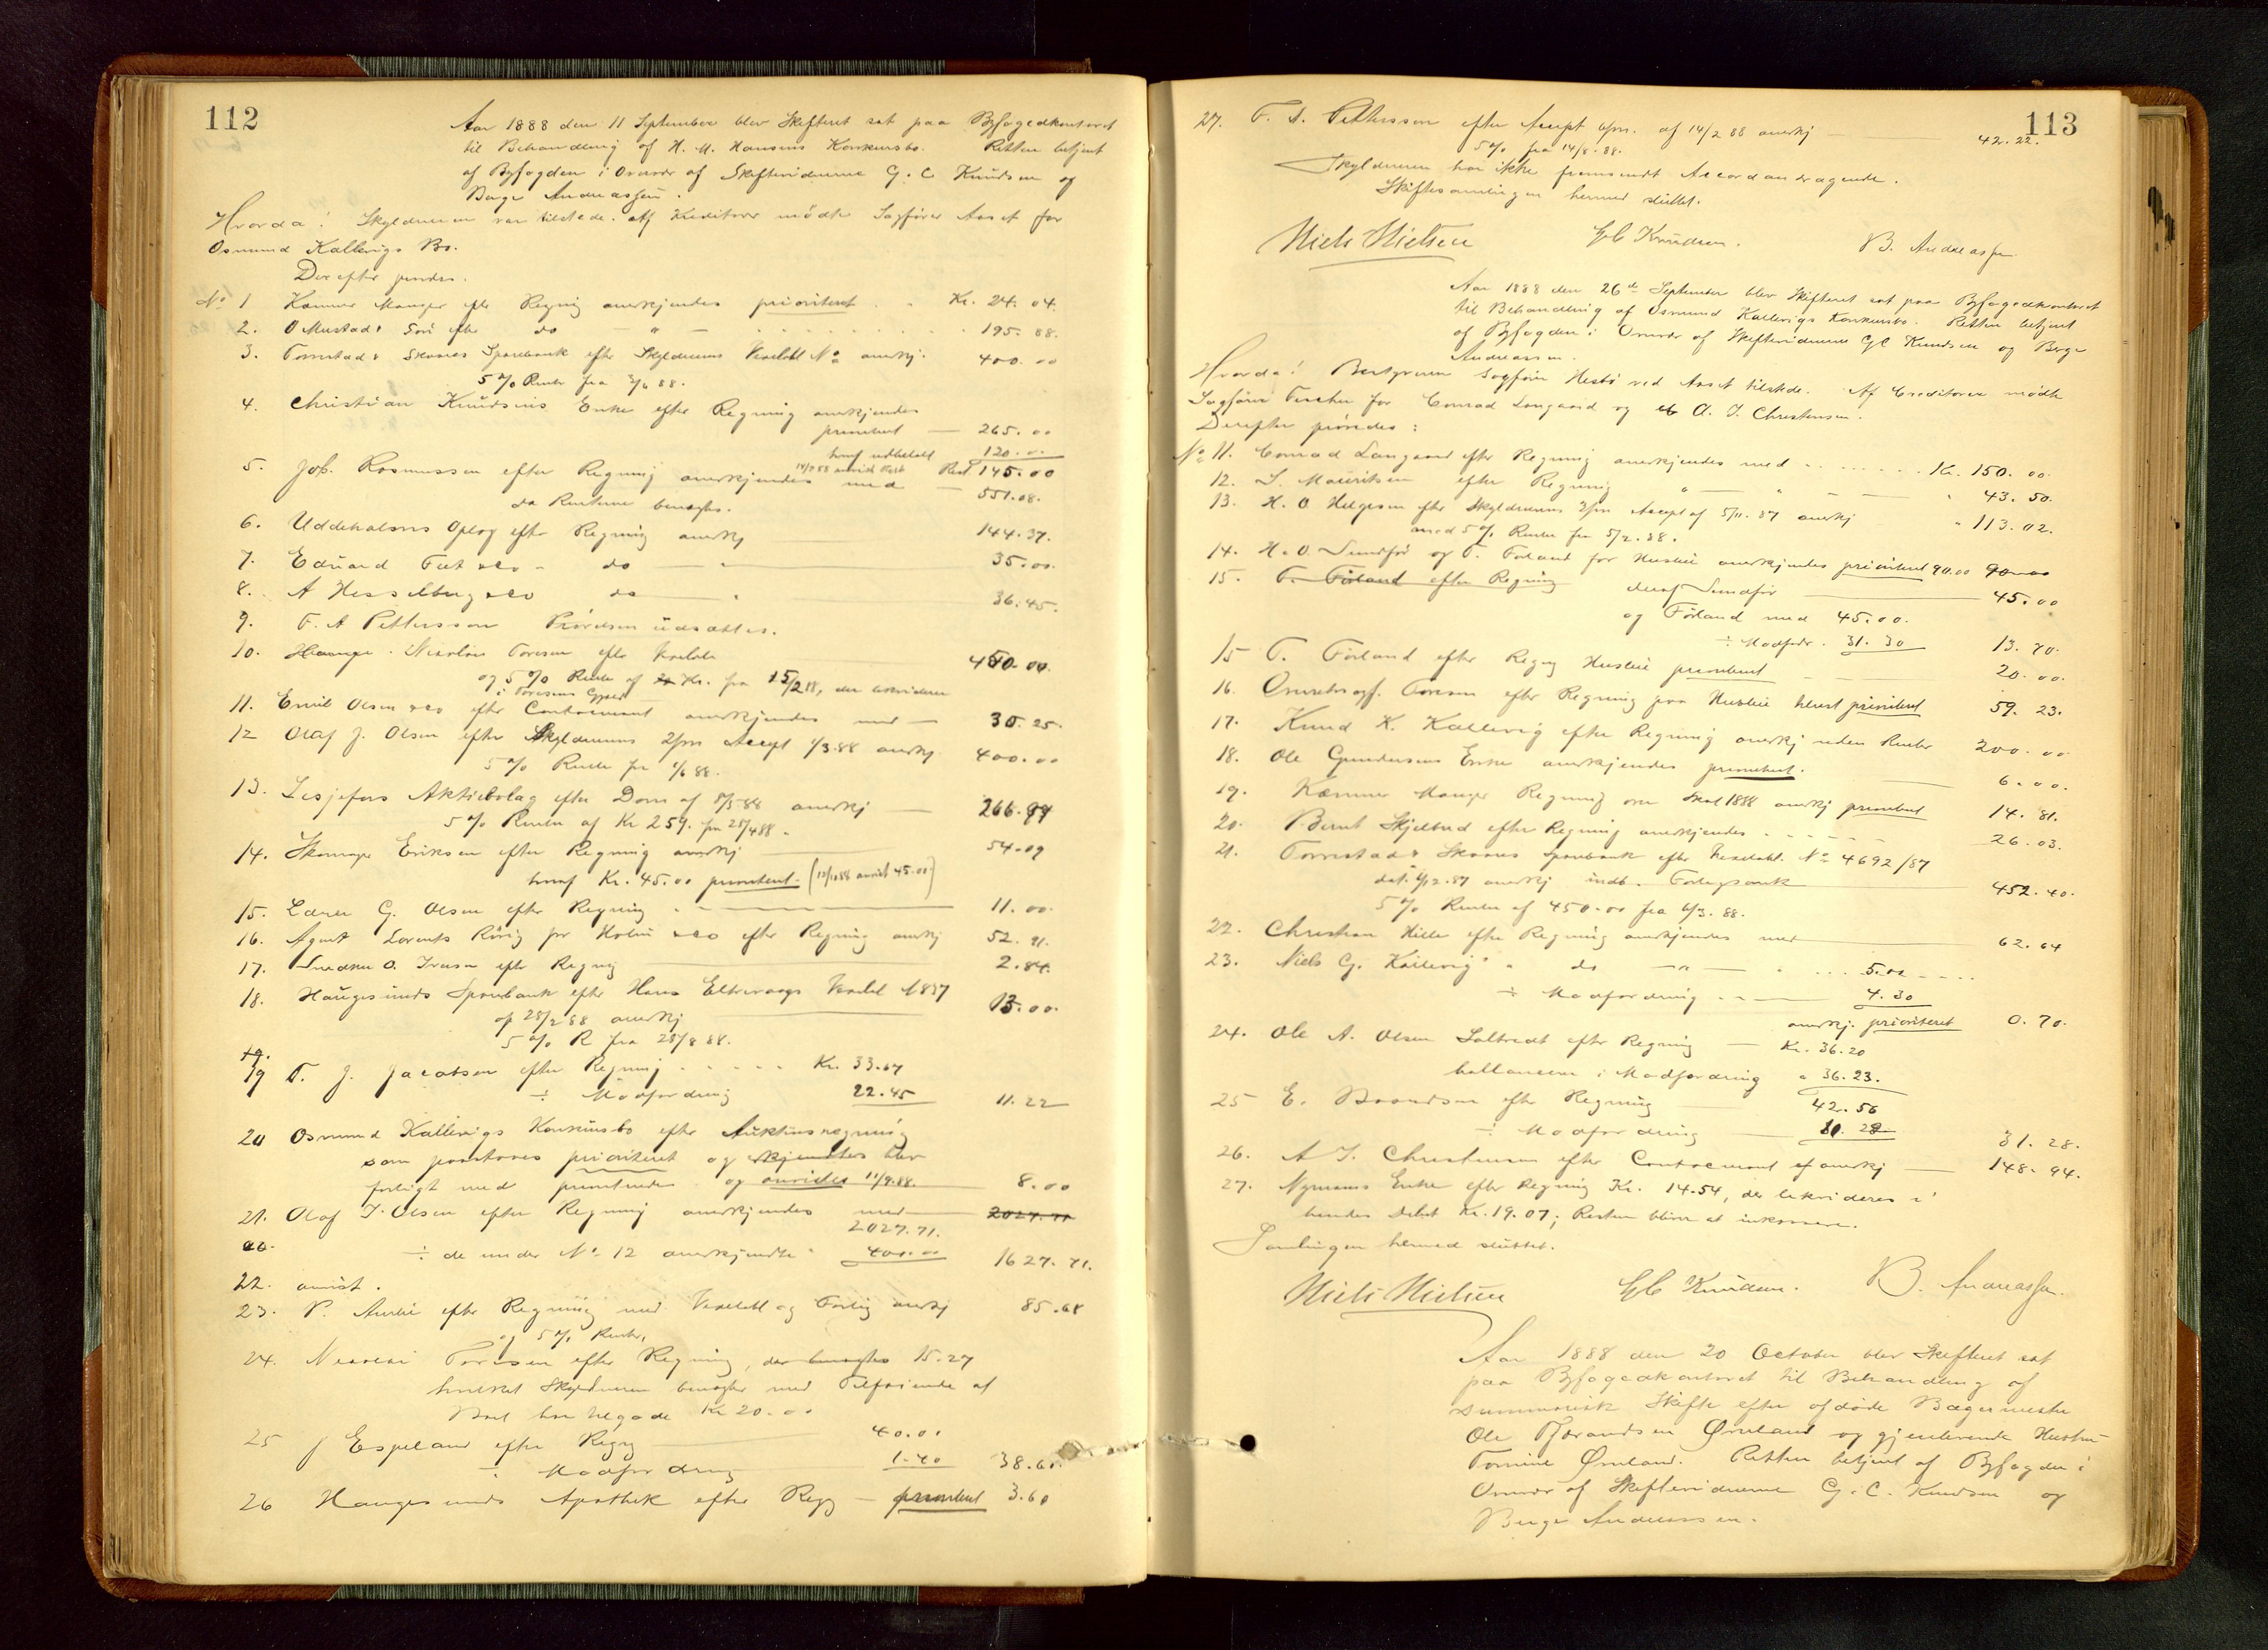 112
Aar 1888 den 11 September blev Skifteret sat paa Byfogedkontoret
til Behandling af H. M. Hansens Konkursbo. Retten betjent
af Byfogden i Overvær af Skiftevidnerne G. C. Knudsen og
Berge Andreassen.
Hvorda! Skyldneren var tilstede. Af Kreditorer mødte Sagfører Aaset for
Osmund Kallevigs Bo.
Derefter
No 1 Kæmner Manger efter Regning anerkjendes prioriteret Kr. 24. 04.
2. O Mustad & Søn efter do - " - 195. 88.
3. Torvestad & Skaares Sparebank efter Skyldnerens Vexelobl No anerkj. 400. 00
5 % Rente fra 88.
4. Christian Knudsens Enke efter Regning anerkjendes
prioriteret — 265. 00
hvoraf udbetalt 120. 00
14/9 88 Rest 145. 00
5. Joh. Rasmussen efter Regning anerkjendes med — 551. 08.
da Renterne benegtes.
6. Uddeholms Oplag efter Regning anerkj 144. 37.
7. Eduard & Co - do — " 35. 00.
8. A Hesselberg & Co do — " 36. 45.
9. F. A Pettersson Prøvelsen udsættes.
10. Nicolai Toresen efter Vexelobl 450. 00.
og 5 % Rente af Kr. fra 15/2 88, der likvideres
i Toresens Gjæld
11. Emil Olsen & Co efter Contocurant anerkjendes med — 30. 25.
12 Olaf J. Olsen efter Skyldnerens 2/m Accept 1/3. 88 anerkj. 400. 00
5 % Rente fra 1/6 88.
13. Lesjefors Aktiebolag efter Dom af 8/5 88 anerkj — 266. 99
5 % Renter af Kr 259. fra 28/4 88.
14. Skomager Eriksen efter Regning anerkj 54. 09
hvoraf Kr. 45. 00 prioriteret. (12/10 88 anvist 45.00)
15. Lærer G. Olsen efter Regning 11. 00.
16. Agent Lorentz Rørig for Holm & Co efter Regning anerkj 52. 91.
17. Snedker O. Iversen efter Regning 2. 84.
18. Haugesunds Sparebank efter Hans Eltrevaags Vexelobl 1837
af 28/2 88 anerkj 13. 00.
5 % R fra 28/8 88.
19.
19 T. J. Jacobsen efter Regning Kr. 33. 67
÷ Modfordring 22. 45 11. 22
20 Osmund Kallevigs Konkursbo efter Auktionsregning
som paastaaes prioriteret og
forligt med prioriteret og anvises 11/9. 88. 8. 00
21. Olaf J. Olsen efter Regning anerkjendes med 2027. 71
2027. 71.
÷ de under No 12 anerkjendte 400. 00 1627. 71.
22. anvist.
23. P. Amlie efter Regning med Vexelobl og Forlig anerkj 85. 68
og 5 % Rente,
24. Nicolai Toresen efter Regning, der benegtes 15. 27
hvilket Skyldneren benegter med Tilføiende af
Boet har tilgode Kr 20. 00
25 J Espeland efter Regng 40. 00
÷ Modfordring 1. 40 38. 60.
26 Haugesunds Apothek efter Regg — prioriteret 3. 60
113
27. F. A. Pettersson efter Accept 6/m. af 14/2 88 anerkj — 42. 22.
5 % fra 14/8. 88.
Skyldneren har ikke fremsendt Accordandragende.
Skiftesamlingen hermed sluttet.
Niels Nielsen GC Knudsen. B. Andreassen
Aar 1888 den 26de September blev Skifteret sat paa Byfogedkontoret
til Behandling af Osmund Kallevigs Konkursbo. Retten betjent
af Byfogden i Overvær af Skiftevidnerne GC Knudsen og Berge
Andreassen.
Hvorda! Bestyreren Sagfører Hesbø ved Aaset tilstede. Af Creditorer mødte
Sagfører Fischer for Conrad Langaard og A. I. Christensen.
Derefter prøvedes:
No 11. Conrad Langaard efter Regning anerkjendes med Kr. 150. 00.
12. S. Mauritsen efter Regning " — " — 43. 50.
13. H. O. Helgesen efter Skyldnerens 3/m Accept af 5/11. 87 anerkj " 113. 02.
med 5 % Rente fra 5/2. 88.
14. H. O. Sundfør og T. Førland for Husleie anerkjendes prioriteret 90.00 90.00
15. T. Førland efter Regning deraf Sundfør 45. 00
og Førland med 45. 00.
÷ Modfordr. 31. 30 13. 70.
15 T. Førland efter Regng Husleie prioriteret 20. 00.
16. Overretssagf. Toresen efter Regning paa Husleie prioriteret 59. 23.
17. Knud K. Kallevig efter Regning anerkj uden Renter 200. 00
18. Ole Gundersens Enke anerkjendes prioriteret. 6. 00.
19. Kæmner Manger Regning om Skat 1888 anerkj prioriteret 14. 81.
20. Bernt Skjelbred efter Regning anerkjendes 26. 03.
21. Torvestad & Skaares Sparebank efter Vexelobl. No 4692/87
dat. 6/12. 87 anerkj indb. 452. 40.
5 % Renter af 450. 00 fra 6/3. 88.
22. Christian Hille efter Regning anerkjendes med 62. 64
23. Niels G. Kallevig " do — " — 5. 00
÷ Modfordring 4. 30
anerkj. prioriteret 0. 70.
24. Ole A. Olsen Saltvedt efter Regning — Kr. 36. 20
ballancerer i Modfordring " 36. 23.
25 E. efter Regning 42. 56
÷ Modfordring 11. 28 31. 28.
26. A I. Christensen efter Contocurant anerkj — 148. 94.
27. Nymans Enke efter Regning Kr. 14.54, der likvideres i
hendes Debet Kr. 19. 07; Resten bliver at inkassere.
Samlingen hermed sluttet.
Niels Nielsen GC Knudsen. B. Andreassen.
Aar 1888 den 20 October blev Skifteret sat
paa Byfogedkontoret til Behandling af
summarisk Skifte efter afdøde Bagermester
Ole Tjerandsen Ørnland og gjenlevende Hustru
Tomine Ørnland. Retten betjent af Byfogden i
Overvær af Skiftevidnerne G. C. Knudsen og
Berge Andreassen.